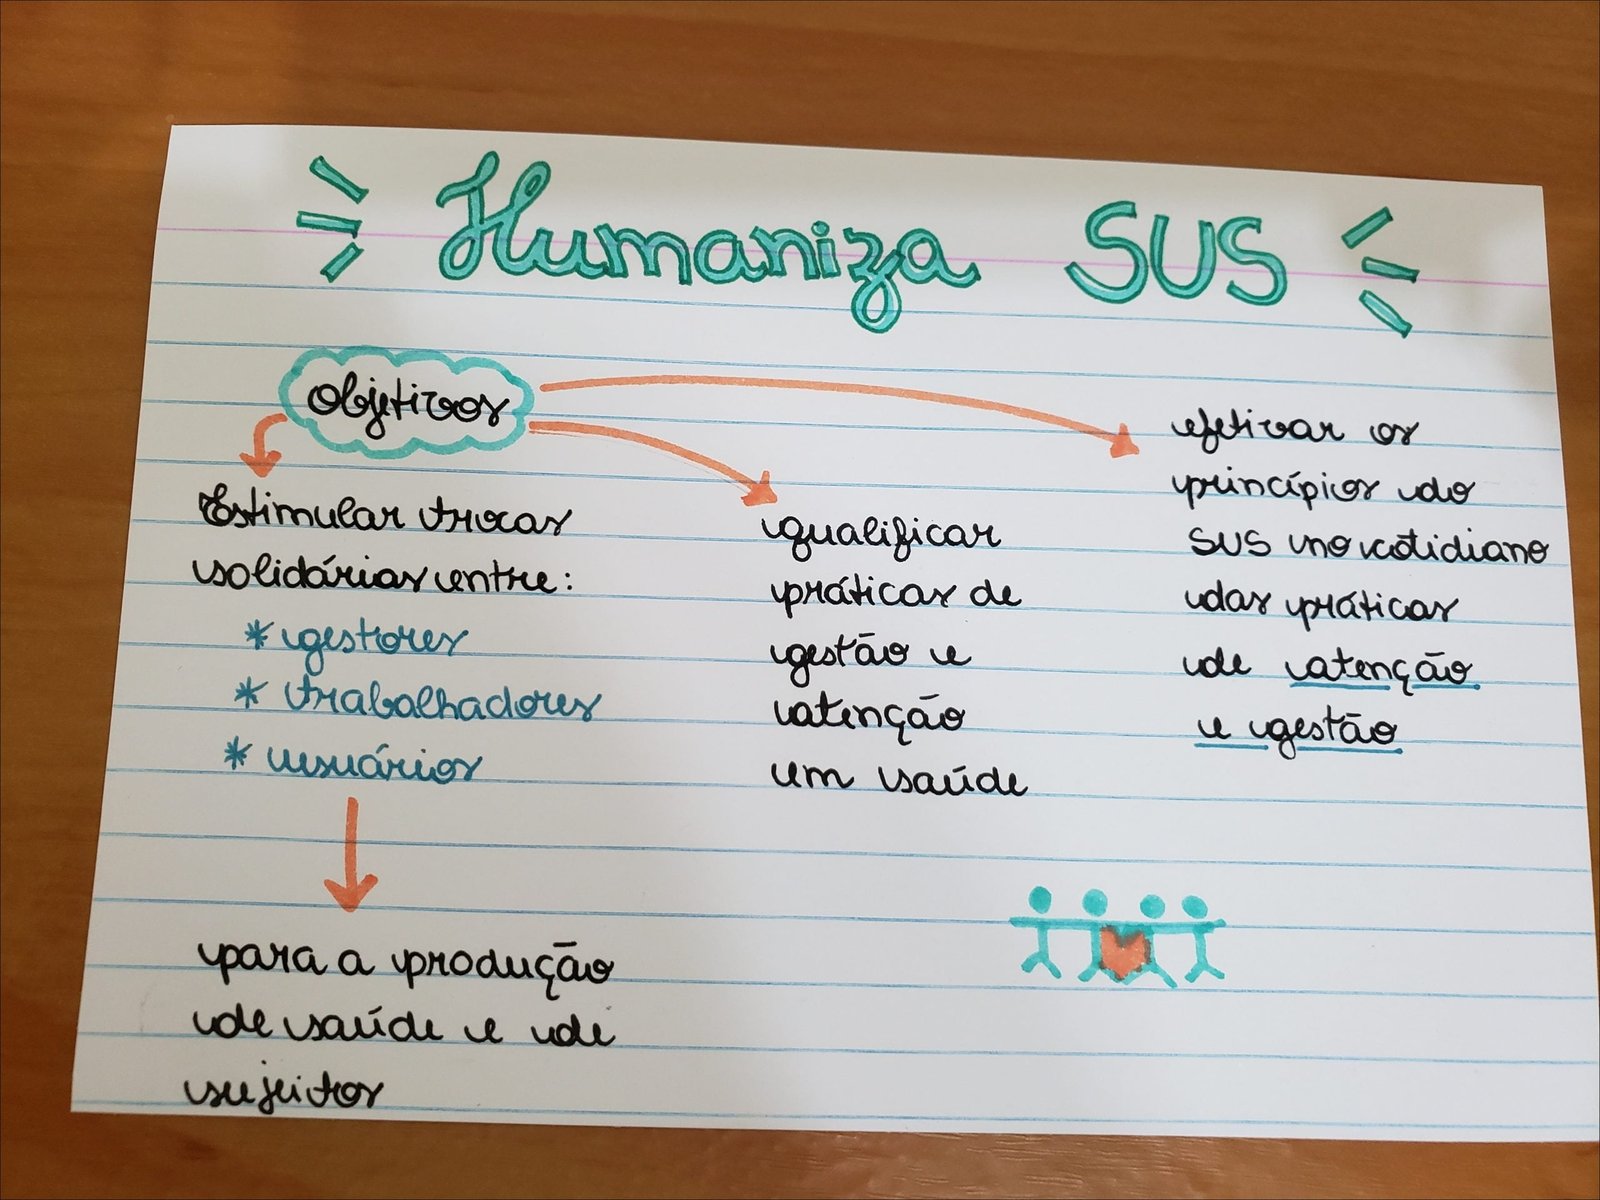 Humaniza SUS
objetivos
Estimular trocas
solidárias entre:
* gestores
* trabalhadores
* usuários
para a produção
de saúde e de
sujeitos
qualificar
práticas de
gestão e
atenção
em saúde
efetivar os
princípios do
SUS no cotidiano
das práticas
de atenção
e gestão